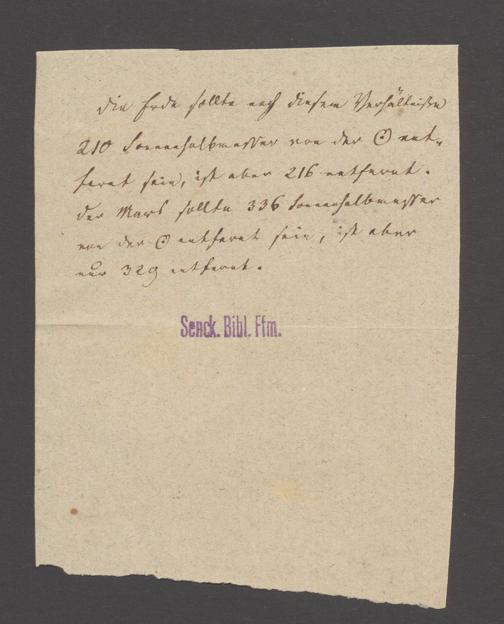 Die Erde sollte nach diesem Verhältnisse
210 Sonnenhalbmesser von der ☉ ent-
fernt sein, ist aber 216 entfernt.
Der Mars sollte 336 Sonnenhalbmesser
von der ☉ entfernt sein, ist aber
nur 329 entfernt.
Senck. Bibl. Ffm.